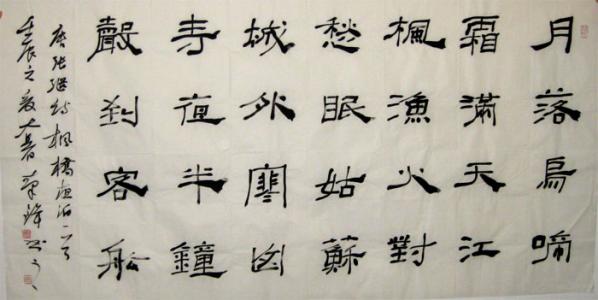 月落烏啼
霜滿天江
楓漁火對
愁眠姑蘇
城外寒山
寺夜半鐘
聲到客船
唐張繼詩楓橋夜泊一首
壬辰之夏大暑